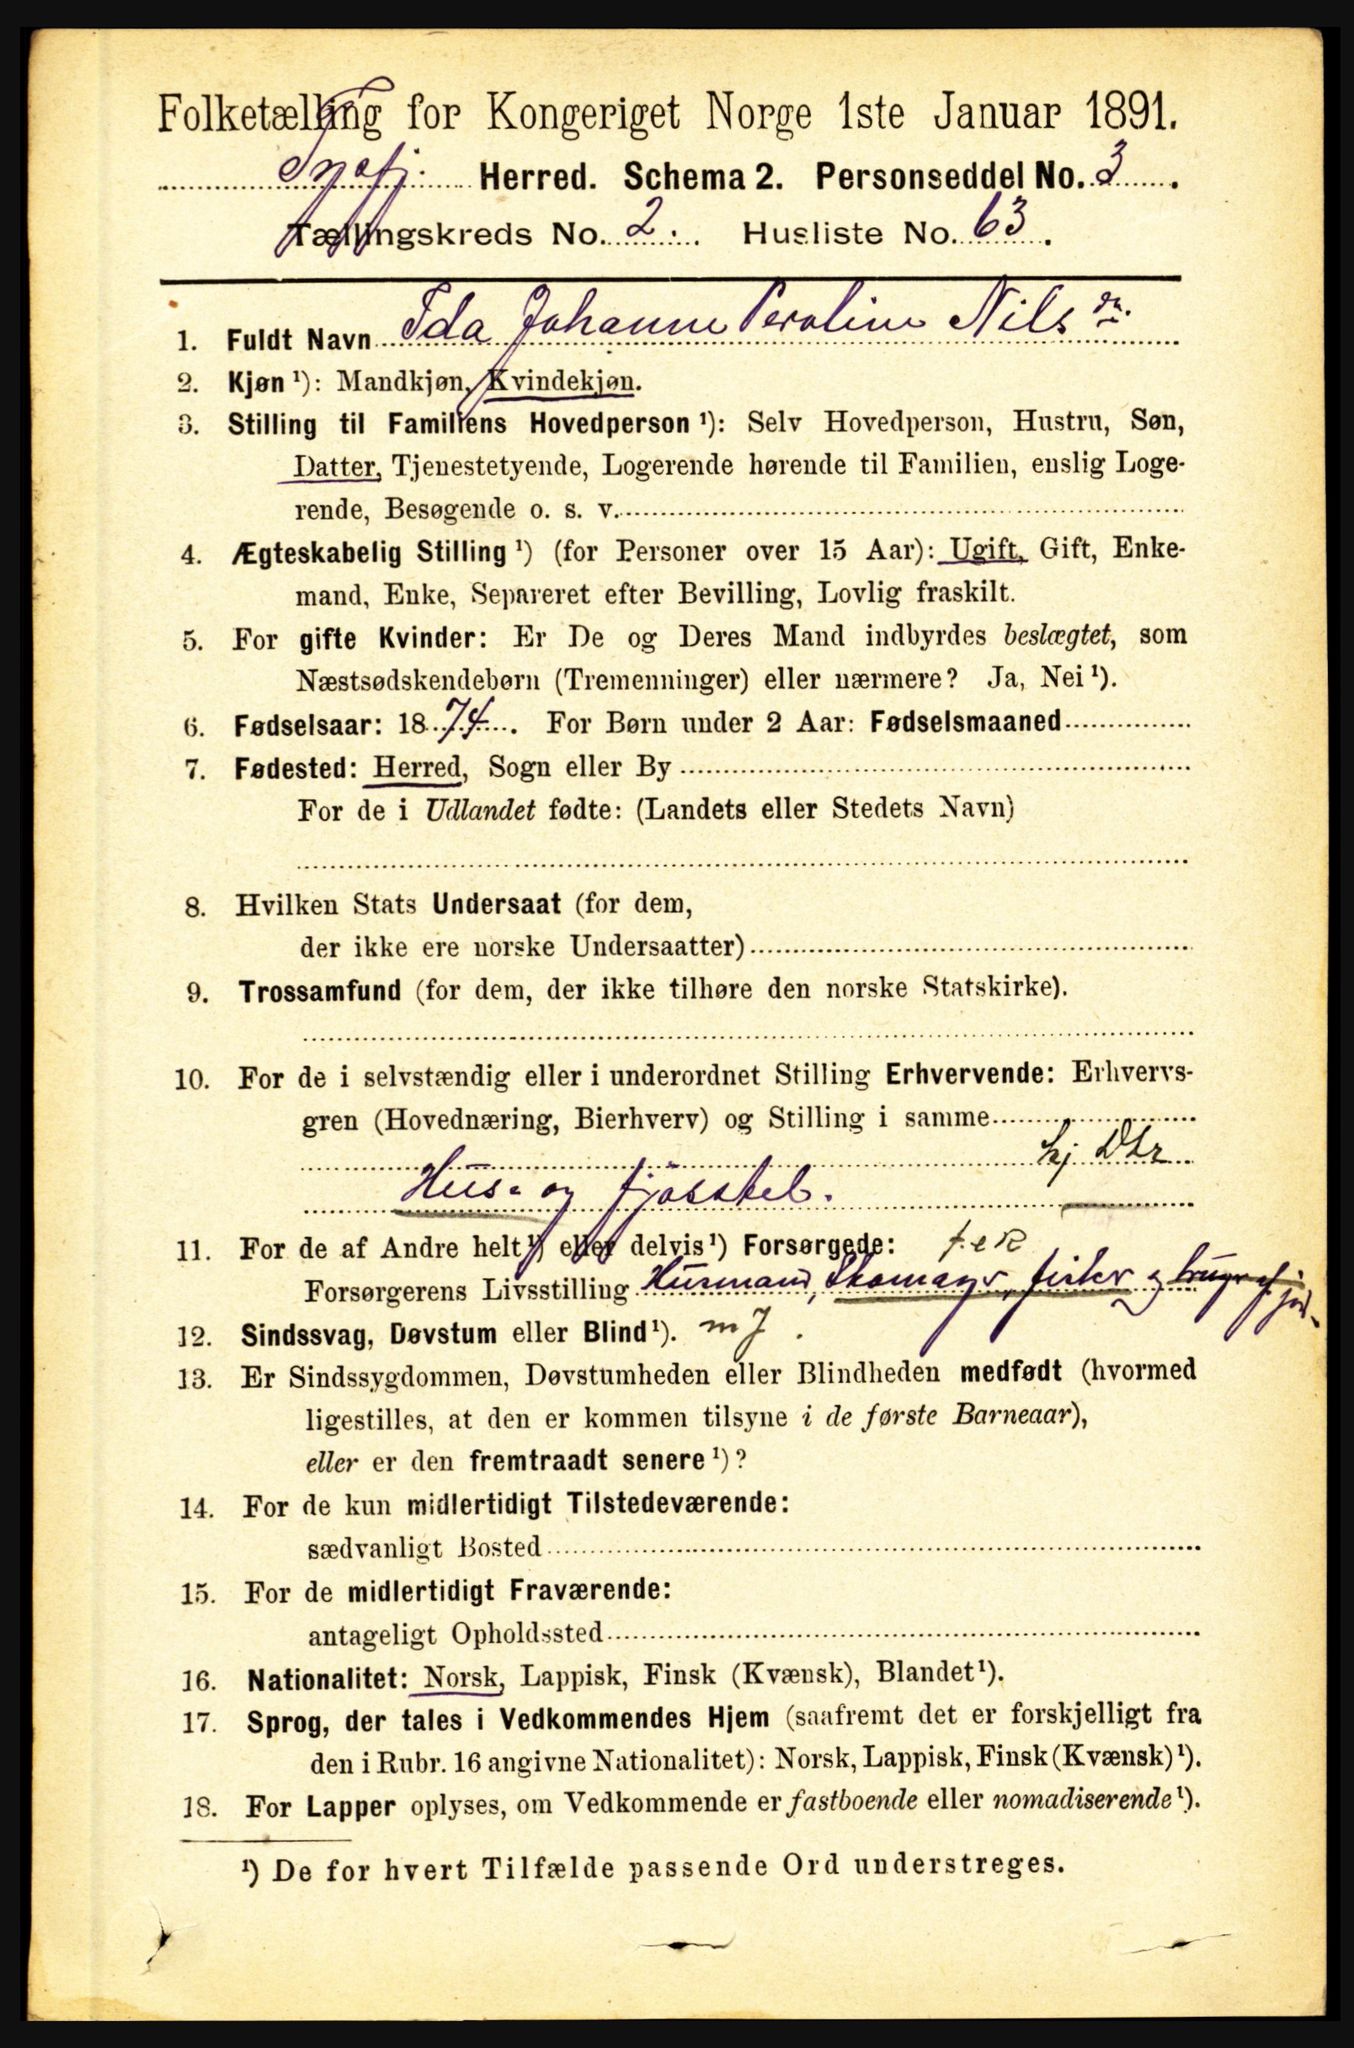 Folketælling for Kongeriget Norge 1ste Januar 1891.
Herred. Schema 2. Personseddel No. 3.
Tællingskreds No. 2. Husliste No. 63.
1. Fuldt Navn Ida Johanne Peroline Nilsdr.
2. Kjøn¹): Mandkjøn, Kvindekjøn.
3. Stilling til Familiens Hovedperson¹): Selv Hovedperson, Hustru, Søn,
Datter, Tjenestetyende, Logerende hørende til Familien, enslig Loge-
rende, Besøgende o. s. v.
4. Ægteskabelig Stilling¹) (for Personer over 15 Aar): Ugift, Gift, Enke-
mand, Enke, Separeret efter Bevilling, Lovlig fraskilt.
5. For gifte Kvinder: Er De og Deres Mand indbyrdes beslægtet, som
Næstsødskendebørn (Tremenninger) eller nærmere? Ja, Nei¹).
6. Fødselsaar: 1874. For Børn under 2 Aar: Fødselsmaaned
7. Fødested: Herred, Sogn eller By
For de i Udlandet fødte: (Landets eller Stedets Navn)
8. Hvilken Stats Undersaat (for dem,
der ikke ere norske Undersaatter)
9. Trossamfund (for dem, der ikke tilhøre den norske Statskirke).
10. For de i selvstændig eller i underordnet Stilling Erhvervende: Erhvervs-
gren (Hovednæring, Bierhverv) og Stilling i samme
hj Dtr
Hus- og fjøsstel.
11. For de af Andre helt¹) eller delvis¹) Forsørgede:
Forsørgerens Livsstilling Husmand, Skomager, fisker og bruger af jord
12. Sindssvag, Døvstum eller Blind¹). m J.
13. Er Sindssygdommen, Døvstumheden eller Blindheden medfødt (hvormed
ligestilles, at den er kommen tilsyne i de første Barneaar),
eller er den fremtraadt senere¹)?
14. For de kun midlertidigt Tilstedeværende:
sædvanligt Bosted
15. For de midlertidigt Fraværende:
antageligt Opholdssted
16. Nationalitet: Norsk, Lappisk, Finsk (Kvænsk), Blandet¹).
17. Sprog, der tales i Vedkommendes Hjem (saafremt det er forskjelligt fra
den i Rubr. 16 angivne Nationalitet): Norsk, Lappisk, Finsk (Kvænsk)¹).
18. For Lapper oplyses, om Vedkommende er fastboende eller nomadiserende¹).
¹) De for hvert Tilfælde passende Ord understreges.